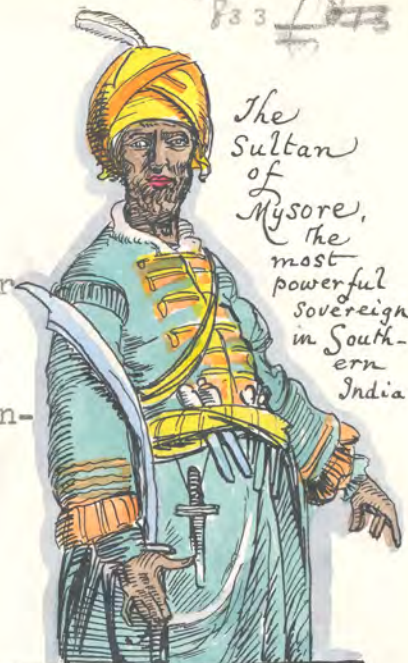 833
The
Sultan
of
Mysore,
the
most
powerful
Sovereign
in South-
ern
India
r
n-